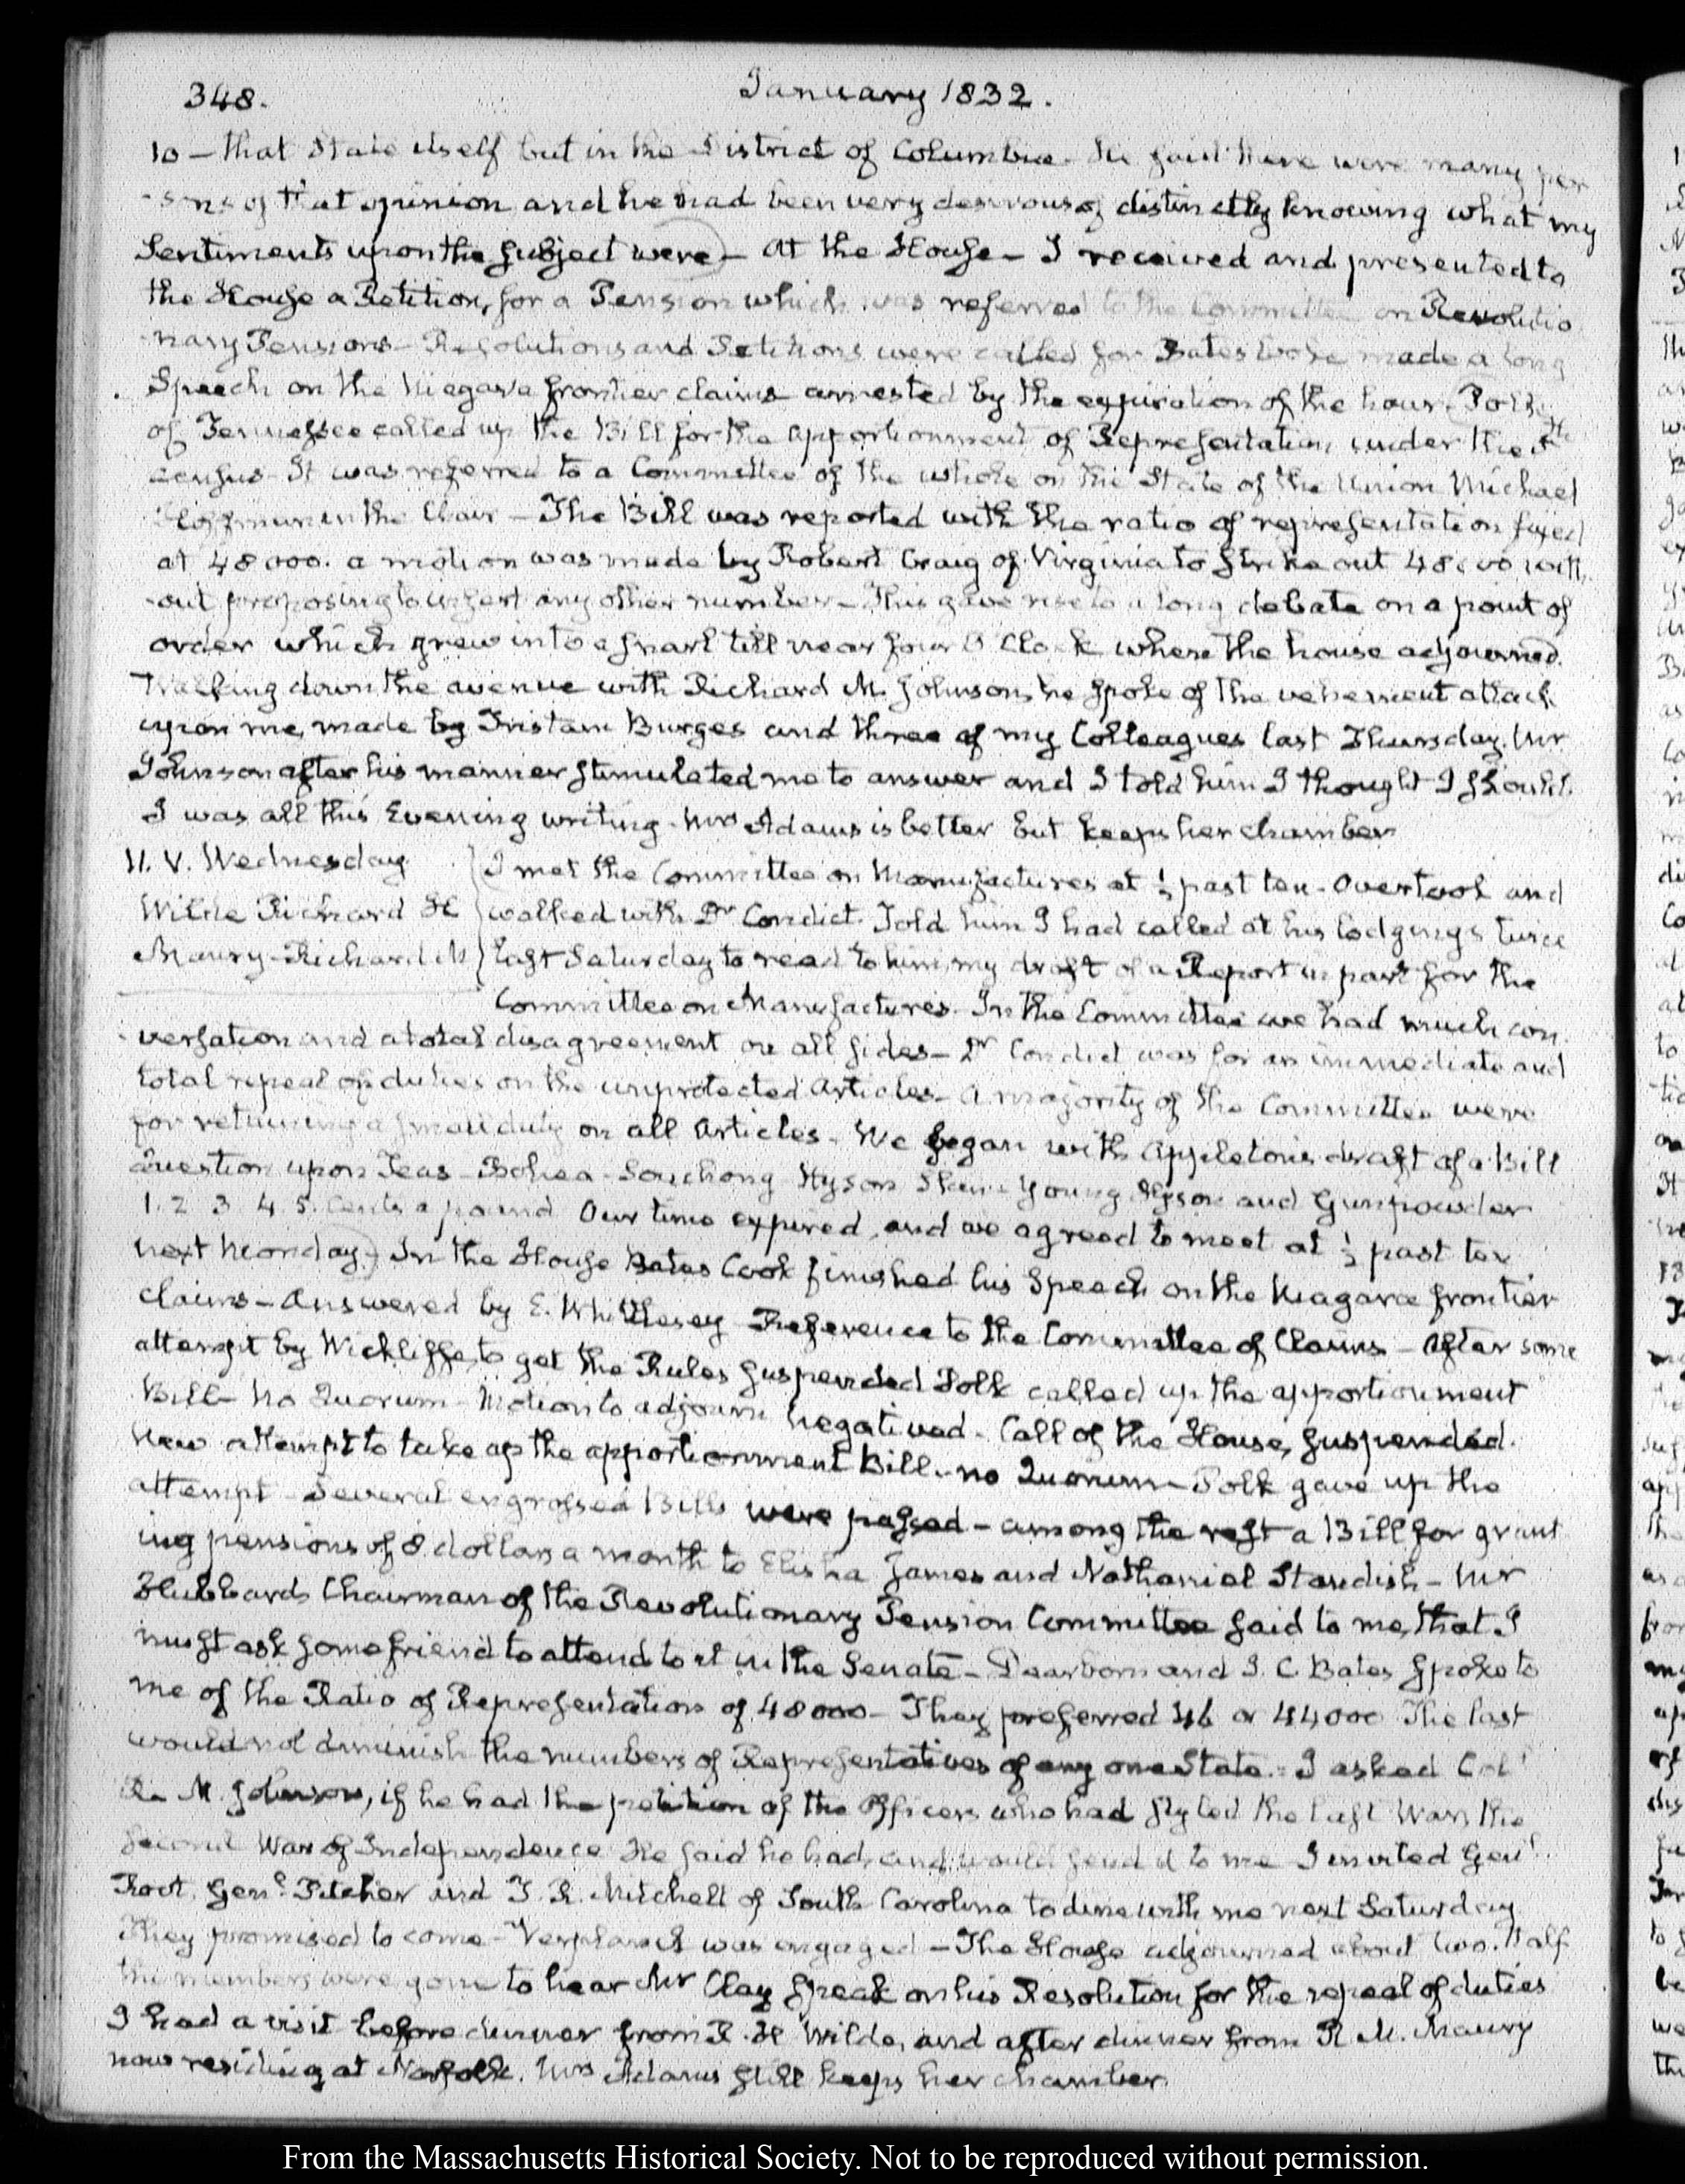 348.
January 1832.
10 — that State itself but in the District of Columbia. He said there were many per
-sons of that opinion and he had been very desirous of distinctly knowing what my
Sentiments upon the subject were — At the House — I received and presented to
the House a Petition, for a Pension which was referred to the Committee on Revolutio
-nary Pensions — Resolutions and Petitions were called for Bates Cooke made a long
Speech on the Niagara frontier claims arrested by the expiration of the hour. Polk
of Tennessee called up the Bill for the Apportionment of Representation, under the 5th
census. It was referred to a Committee of the whole on the State of the Union Michael
Hoffman in the Chair — The Bill was reported with the ratio of representation fixed
at 48000. a motion was made by Robert Craig of Virginia to strike out 48000 with
-out proposing to insert any other number — This gave rise to a long debate on a point of
order which grew into a snarl till near four O'Clock when the house adjourned.
Walking down the avenue with Richard M. Johnson, he spoke of the vehement attack
upon me, made by Tristam Burges and three of my Colleagues last Thursday. Mr
Johnson after his manner stimulated me to answer and I told him I thought I should.
I was all this Evening writing. Mrs Adams is better but keeps her chamber
11. V. Wednesday
Wilde Richard H
Maury Richard M
I met the Committee on Manufactures at ½ past ten. Overtook and
walked with Dr Condict. Told him I had called at his lodgings twice
last Saturday to read to him, my draft of a Report in part for the
Committee on Manufactures. In the Committee we had much con
-versation and a total disagreement on all sides — Dr Condict was for an immediate and
total repeal of duties on the unprotected Articles — A majority of the Committee were
for retaining a small duty on all Articles. We began with Appleton's draft of a Bill
Question upon Teas — Bohea — Souchong Hyson Skin Young Hyson and Gunpowder
1. 2. 3. 4. 5. Cents a pound Our time expired, and we agreed to meet at ½ past ten
next Monday. In the House Bates Cook finished his Speech on the Niagara frontier
claims — Answered by E. Whittlesey Reference to the Committee of Claims — After some
attempt by Wickliffe, to get the Rules suspended Polk called up the apportionment
Bill — No Quorum — Motion to adjourn negatived. Call of the House, suspended.
New attempt to take up the apportionment Bill. no Quorum — Polk gave up the
attempt Several engrossed Bills were passed — among the rest a Bill for grant
ing pensions of 8 dollars a month to Elisha James and Nathaniel Standish — Mr
Hubbard Chairman of the Revolutionary Pension Committee said to me, that I
must ask some friend to attend to it in the Senate — Dearborn and I. C. Bates spoke to
me of the Ratio of Representation of 48000 — They preferred 46 or 44000 The last
would not diminish the numbers of Representatives of any one State. I asked Col
R. M. Johnson, if he had the petition of the Officers who had styled the last War, the
second War of Independence He said he had, and would send it to me I invited Genl.
Root, Genl. Pitcher and T. R. Mitchell of South Carolina to dine with me next Saturday
They promised to come — Verplanck was engaged — The House adjourned about two. Half
the members were gone to hear Mr Clay speak on his Resolution for the repeal of duties
I had a visit before dinner from R. H Wilde, and after dinner from R M. Maury
now residing at Norfolk. Mrs Adams still keeps her chamber.
From the Massachusetts Historical Society. Not to be reproduced without permission.